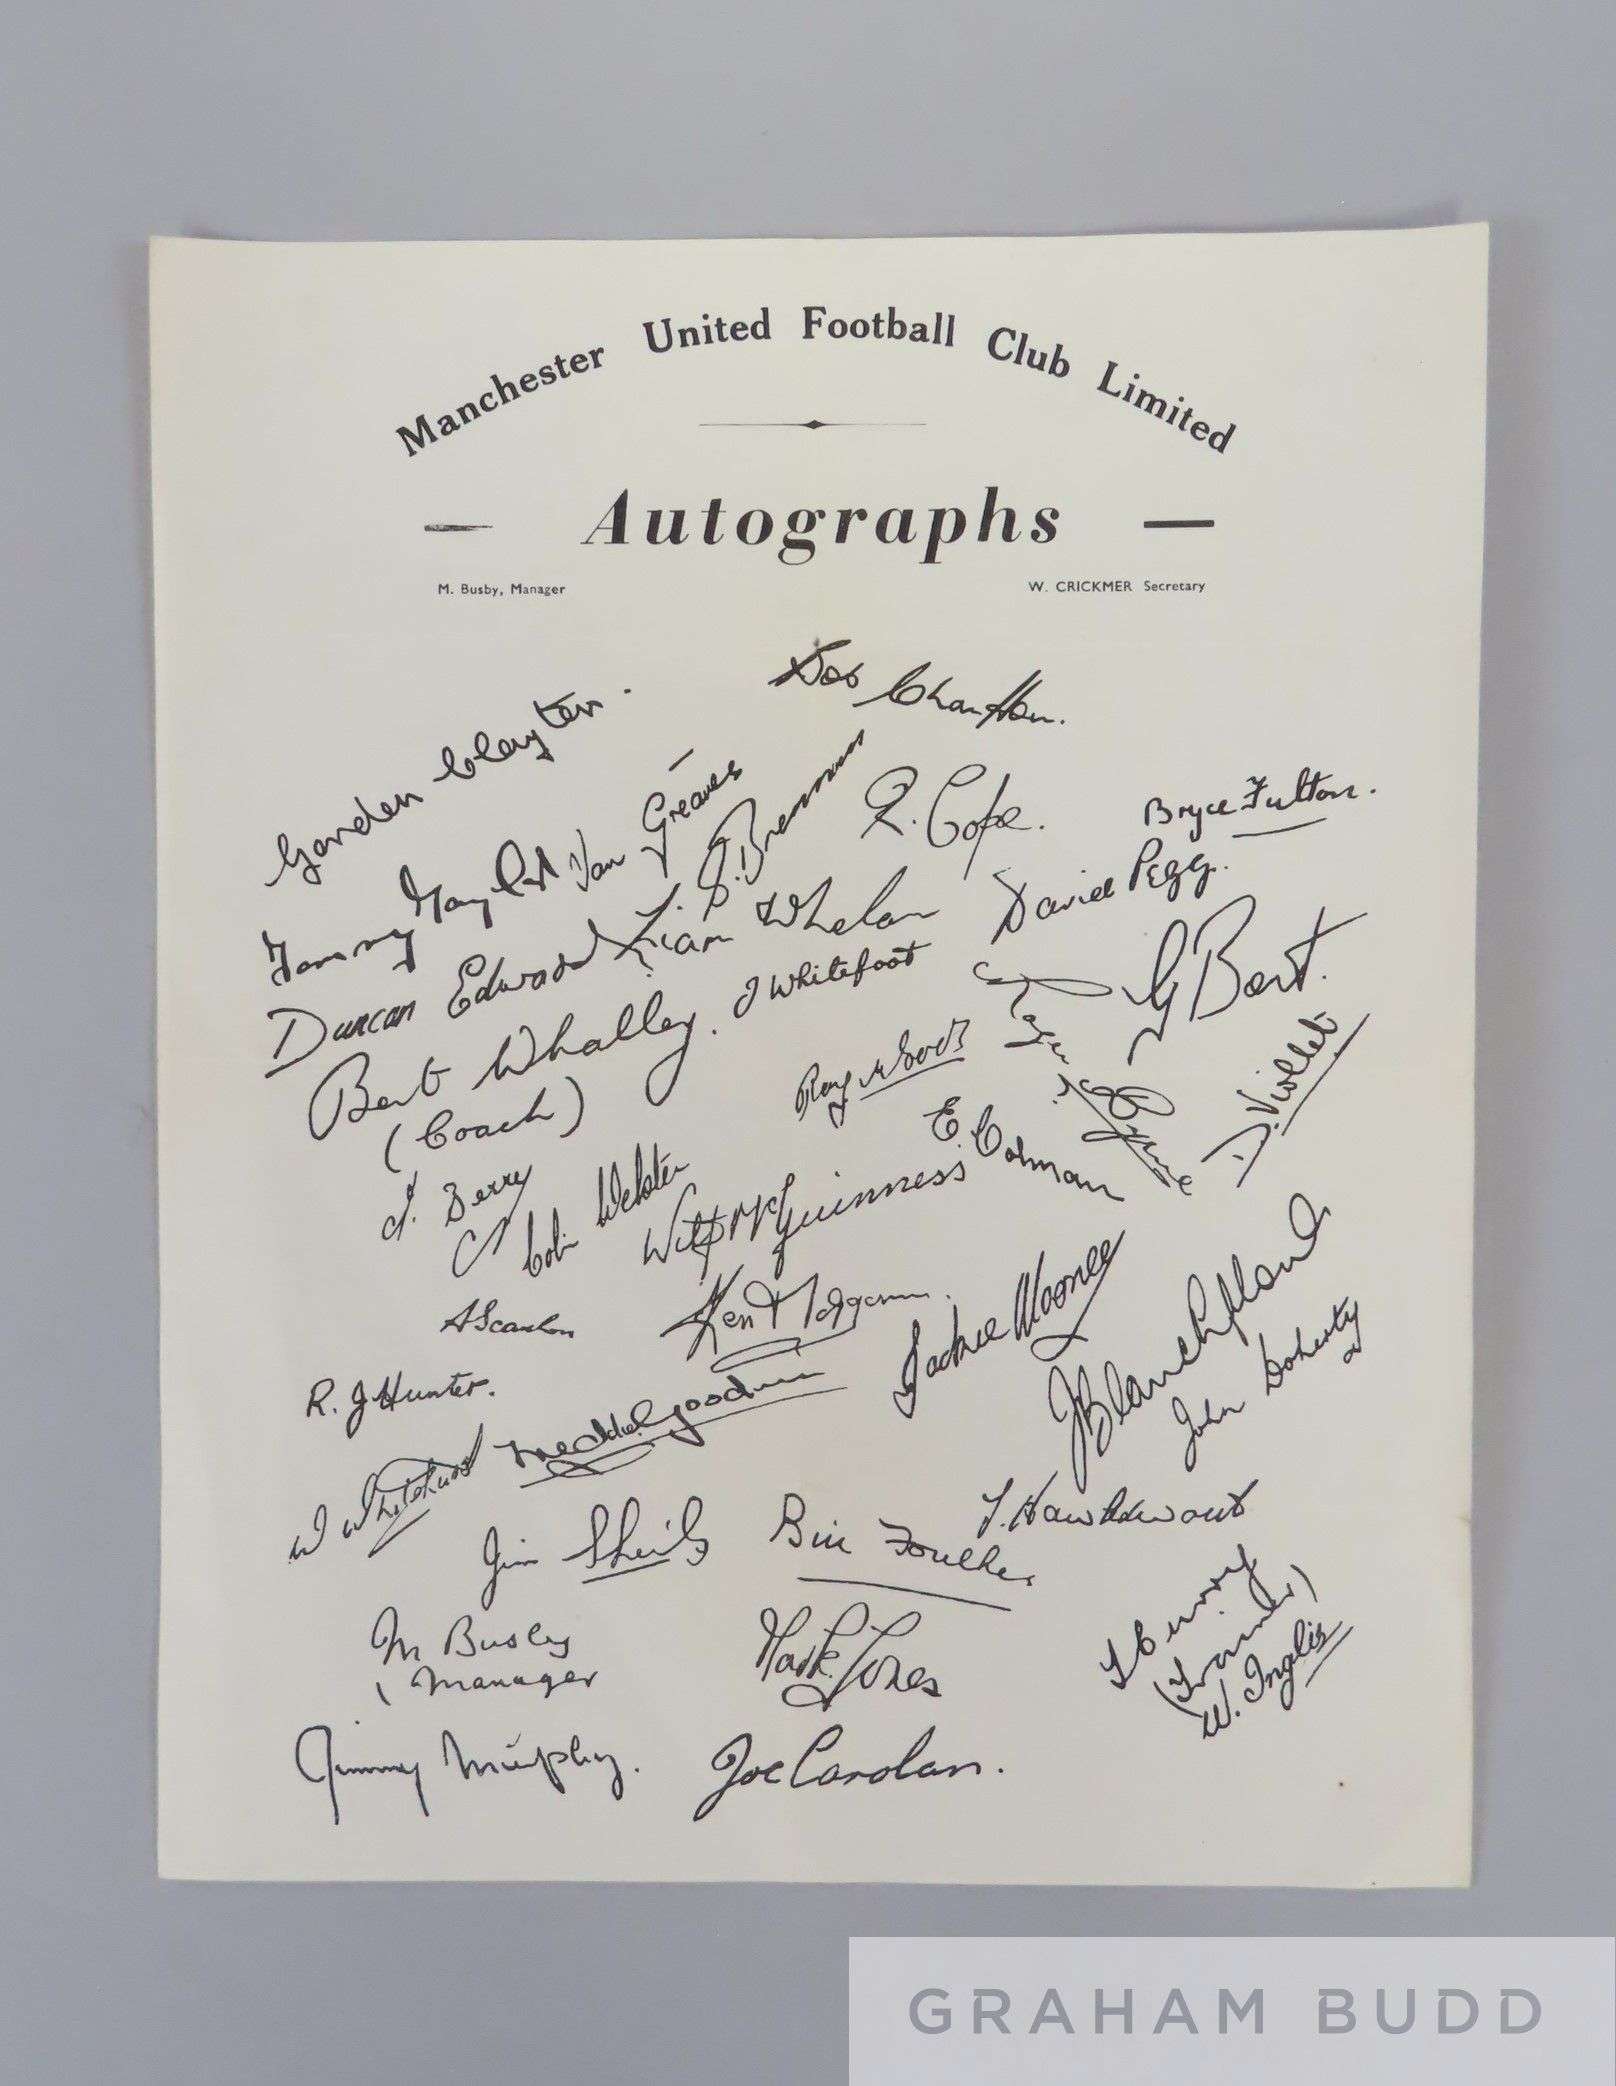 Manchester United Football Club Limited
Autographs
M. Busby, Manager
W. CRICKMER Secretary
Bob Charlton.
Gordon Clayton.
Tommy Taylor
Ian Greaves
S. Brennan
R. Cope.
Bryce Fulton.
David Pegg.
Duncan Edwards
Liam Whelan
G Bent.
Bert Whalley.
(Coach)
J Whitefoot
Roger Byrne
D. Viollet
Roy Wood
E. Colman
J. Berry
Colin Webster
Wilf McGuinness
A Scanlon
Ken Morgans.
Jackie Mooney
J Blanchflower
John Doherty
R. J Hunter.
W Whitehurst
Freddie Goodwin
Jim Sheils
Bill Foulkes
T. Hawksworth
M Busby
Manager
Mark Jones
T Curry
(Trainer)
W. Inglis
Jimmy Murphy.
Joe Carolan.
GRAHAM BUDD